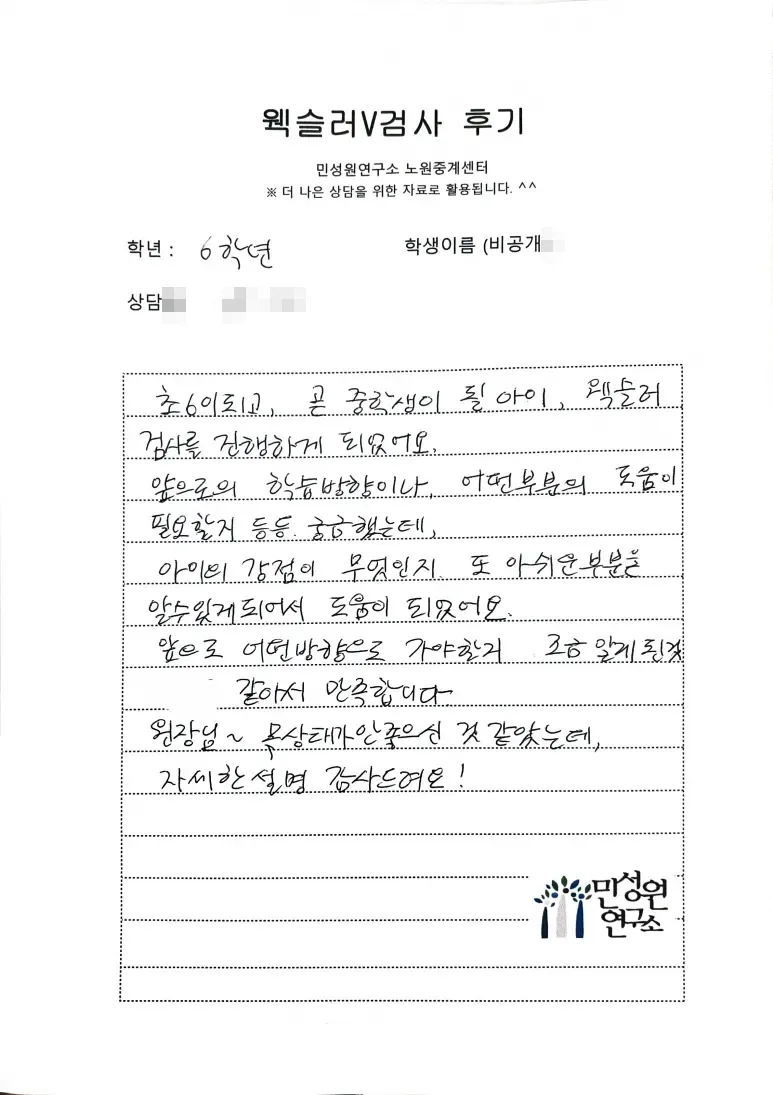 웩슬러V검사 후기
민성원연구소 노원중계센터
※ 더 나은 상담을 위한 자료로 활용됩니다. ^^
학년 : 6학년 학생이름 (비공개
상담
초6이되고, 곧 중학생이 될 아이, 웩슬러
검사를 진행하게 되었어요.
앞으로의 학습방향이나, 어떤부분의 도움이
필요할지 등등 궁금했는데,
아이의 강점이 무엇인지 또 아쉬운부분을
알수있게되어서 도움이 되었어요.
앞으로 어떤방향으로 가야할지 조금 알게된것
같아서 만족합니다
원장님~ 목상태가안좋으신 것 같았는데,
자세한 설명 감사드려요!
민성원
연구소